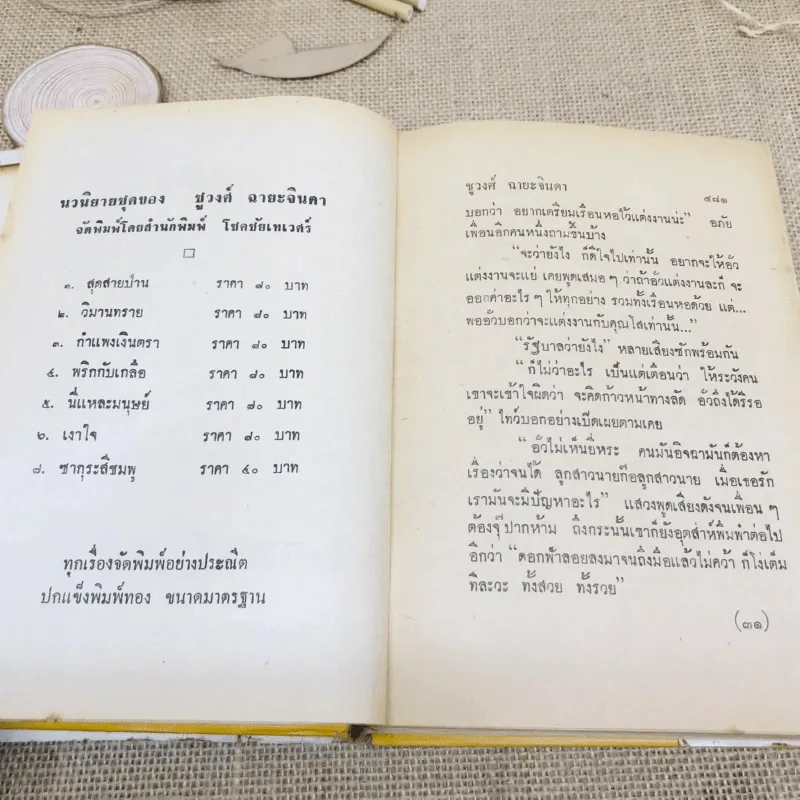 นวนิยายชุดของ ชูวงศ์ ฉายะจินดา
จัดพิมพ์โดยสำนักพิมพ์ โชคชัยเทเวศร์
๑. สุดสายป่าน ราคา ๘๐ บาท
๒. วิมานทราย ราคา ๘๐ บาท
๓. กำแพงเงินตรา ราคา ๘๐ บาท
๔. พริกกับเกลือ ราคา ๘๐ บาท
๕. นี่แหละมนุษย์ ราคา ๘๐ บาท
๖. เงาใจ ราคา ๘๐ บาท
๗. ซากุระสีชมพู ราคา ๔๐ บาท
ทุกเรื่องจัดพิมพ์อย่างประณีต
ปกแข็งพิมพ์ทอง ขนาดมาตรฐาน
ชูวงศ์ ฉายะจินดา
๔๘๑
บอกว่า อยากเตรียมเรือนหอไว้แต่งงานน่ะ” อภัย
เพื่อนอีกคนหนึ่งถามขึ้นบ้าง
“จะว่ายังไง ก็ดีใจไปเท่านั้น อยากจะให้อั๊ว
แต่งงานจะแย่ เคยพูดเสมอ ๆ ว่าถ้าอั๊วแต่งงานละก็ จะ
ออกค่าอะไร ๆ ให้ทุกอย่าง รวมทั้งเรือนหอด้วย แต่...
พออั๊วบอกว่าจะแต่งงานกับคุณโสเท่านั้น...”
“รัฐบาลว่ายังไง” หลายเสียงซักพร้อมกัน
“ก็ไม่ว่าอะไร เป็นแต่เตือนว่า ให้ระวังคน
เขาจะเข้าใจผิดว่า จะคิดก้าวหน้าทางลัด อั๊วถึงได้รีรอ
อยู่” ไทว์บอกอย่างเปิดเผยตามเคย
“อั๊วไม่เห็นยี่หระ คนมันอิจฉามันก็ต้องหา
เรื่องว่าจนได้ ลูกสาวนายก็อลูกสาวนาย เมื่อเธอรัก
เรามันจะมีปัญหาอะไร” แสวงพูดเสียงดังจนเพื่อน ๆ
ต้องจุ๊ปากห้าม ถึงกระนั้นเขาก็ยังอุตส่าห์พึมพำต่อไป
อีกว่า “ดอกฟ้าลอยลงมาจนถึงมือแล้วไม่คว้า ก็โง่เต็ม
ทีละวะ ทั้งสวย ทั้งรวย”
(๓๑)